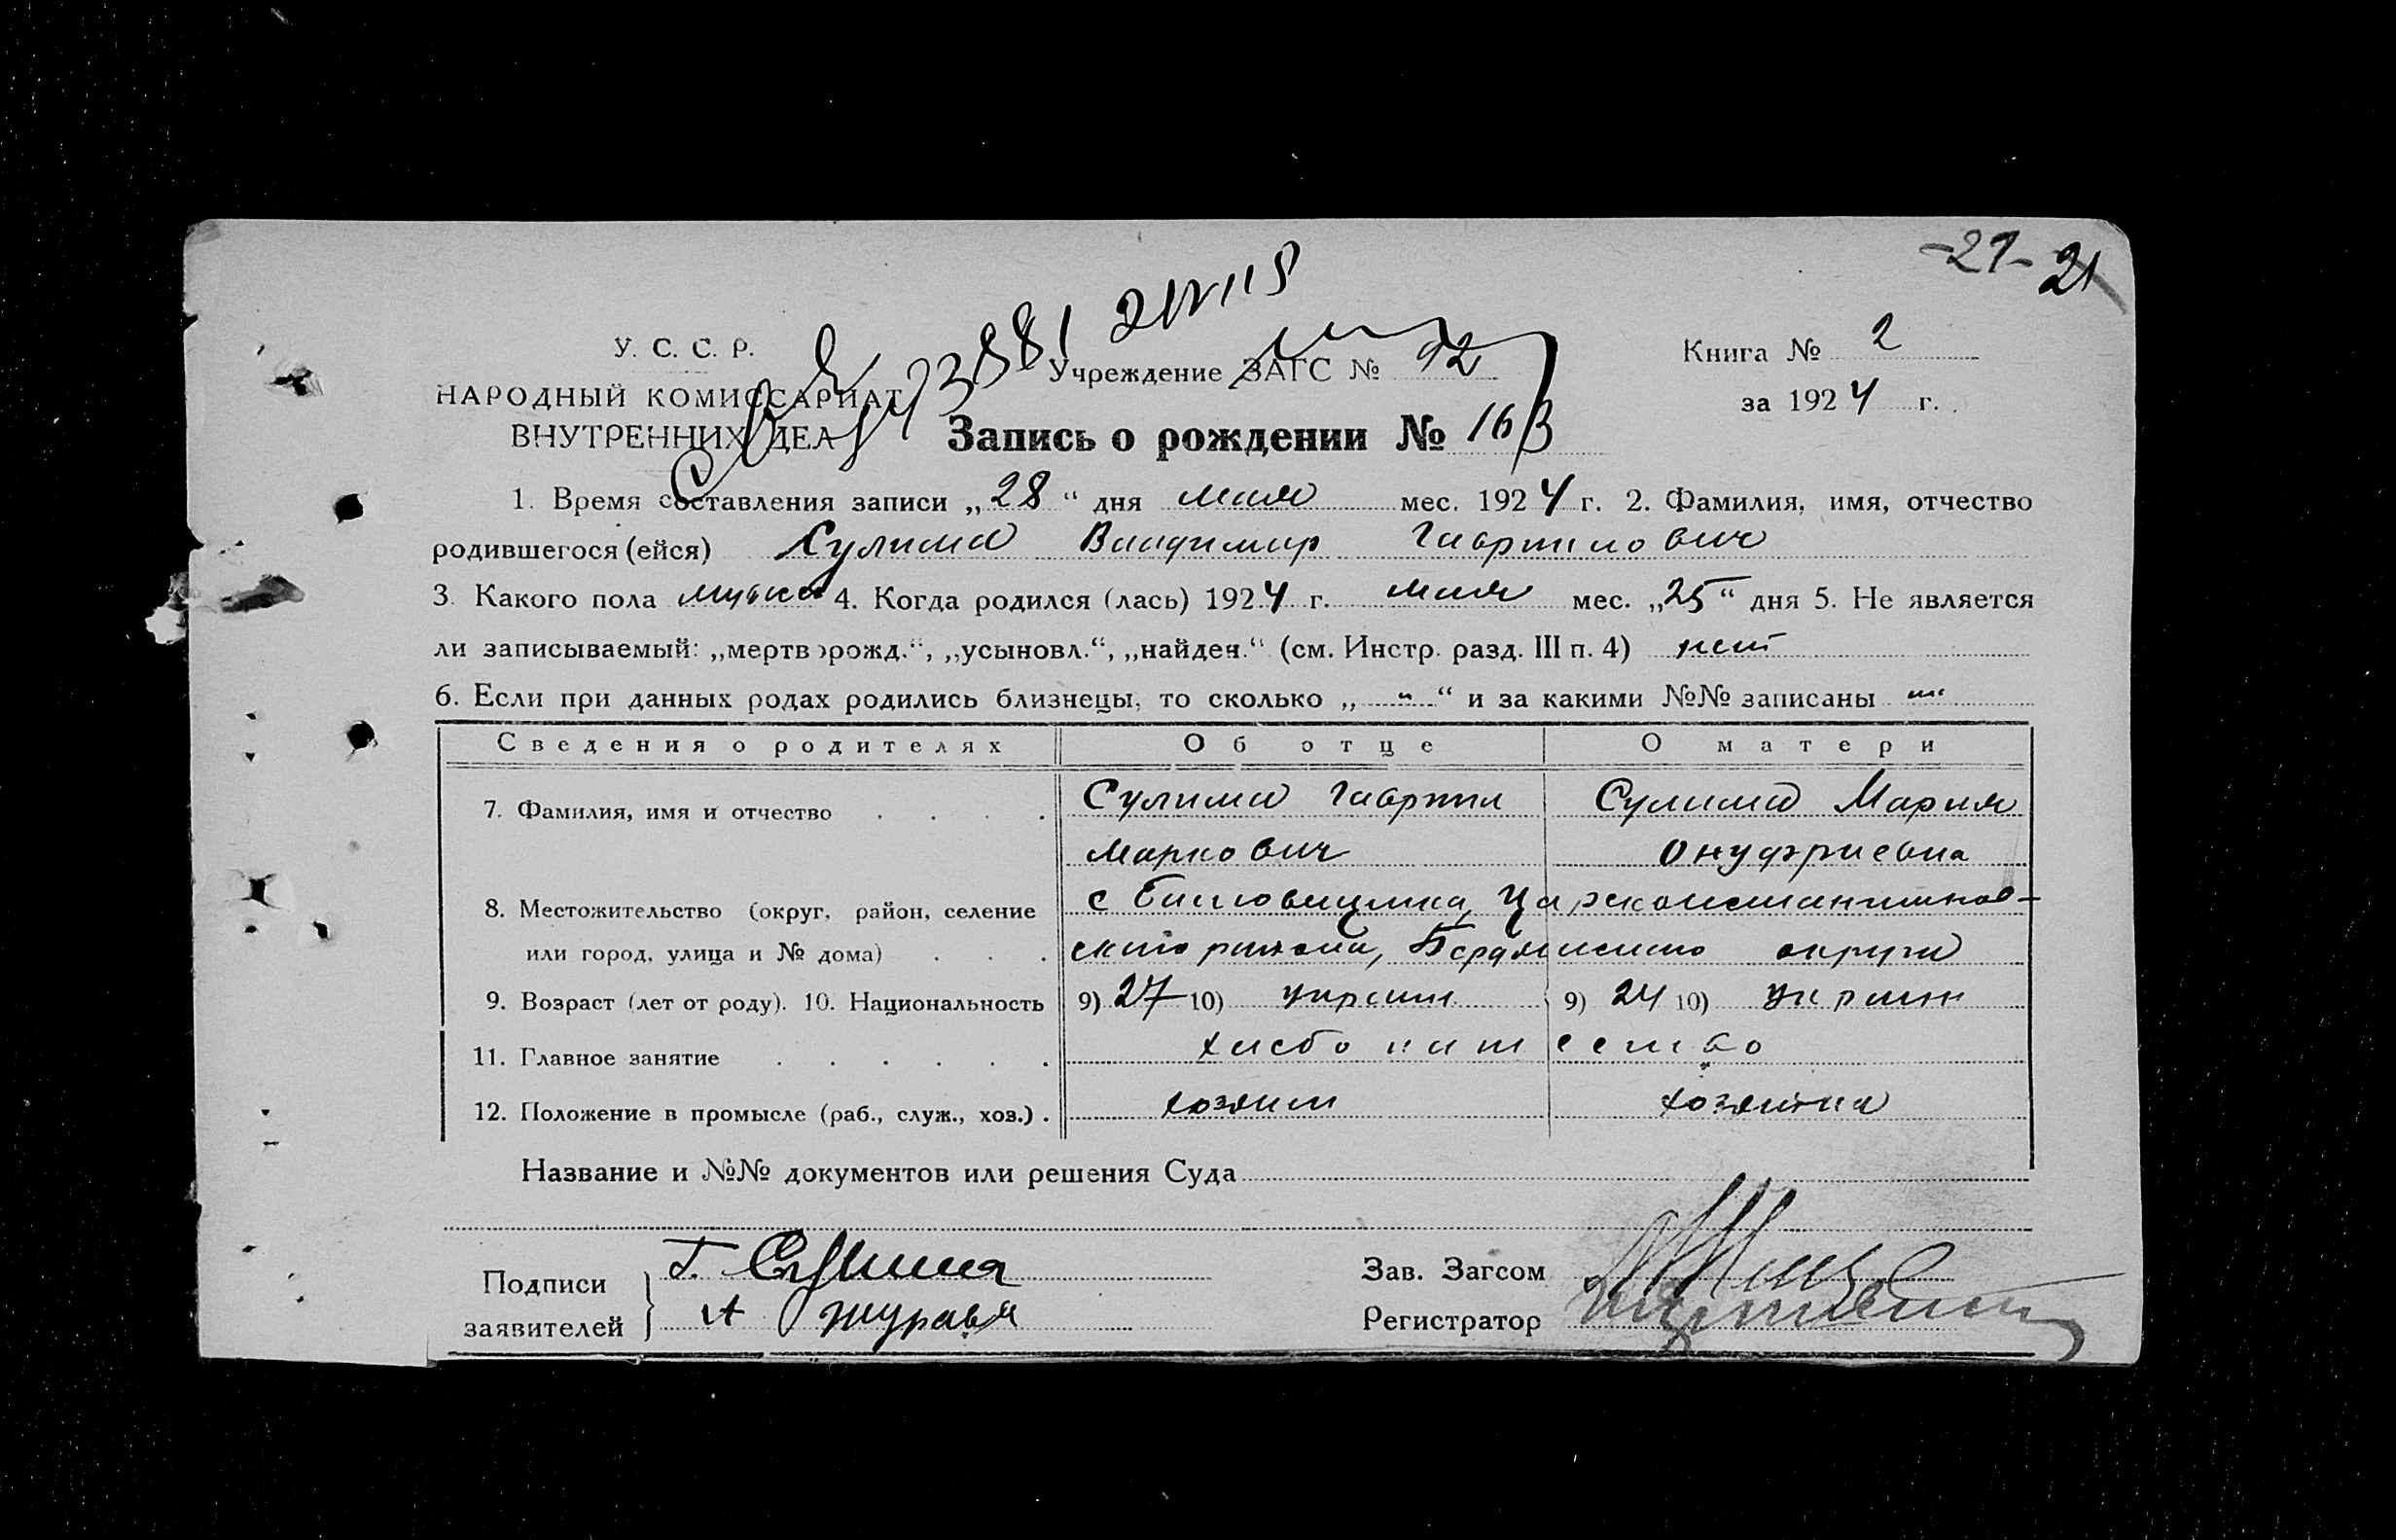 -21- 21
У. С. С. Р.
НАРОДНЫЙ КОМИССАРИАТ
ВНУТРЕННИХ ДЕЛ
Учреждение ЗАГС № 92
Книга № 2
за 1924 г.
Запись о рождении № 163
1. Время составления записи „28“ дня мая мес. 1924 г. 2. Фамилия, имя, отчество
родившегося (ейся) Сулима Владимир Гаврилович
3. Какого пола мужск 4. Когда родился (лась) 1924 г. мая мес. „25“ дня 5. Не является
ли записываемый: „мертворожд.“, „усыновл.“, „найден.“ (см. Инстр. разд. III п. 4) нет
6. Если при данных родах родились близнецы, то сколько „ - “ и за какими №№ записаны
Сведения о родителях Об отце О матери
7. Фамилия, имя и отчество Сулима Гаврил Сулима Мария
Маркович Онуфриевна
8. Местожительство (округ, район, селение с Царсконстантинов-
или город, улица и № дома) ского района, округи
9. Возраст (лет от роду). 10. Национальность 9) 27 10) украин 9) 24 10) украин
11. Главное занятие хлебопашество
12. Положение в промысле (раб., служ., хоз.) хозяин хозяйка
Название и №№ документов или решения Суда
Подписи заявителей Г. Сулима
А Журавл
Зав. Загсом
Регистратор